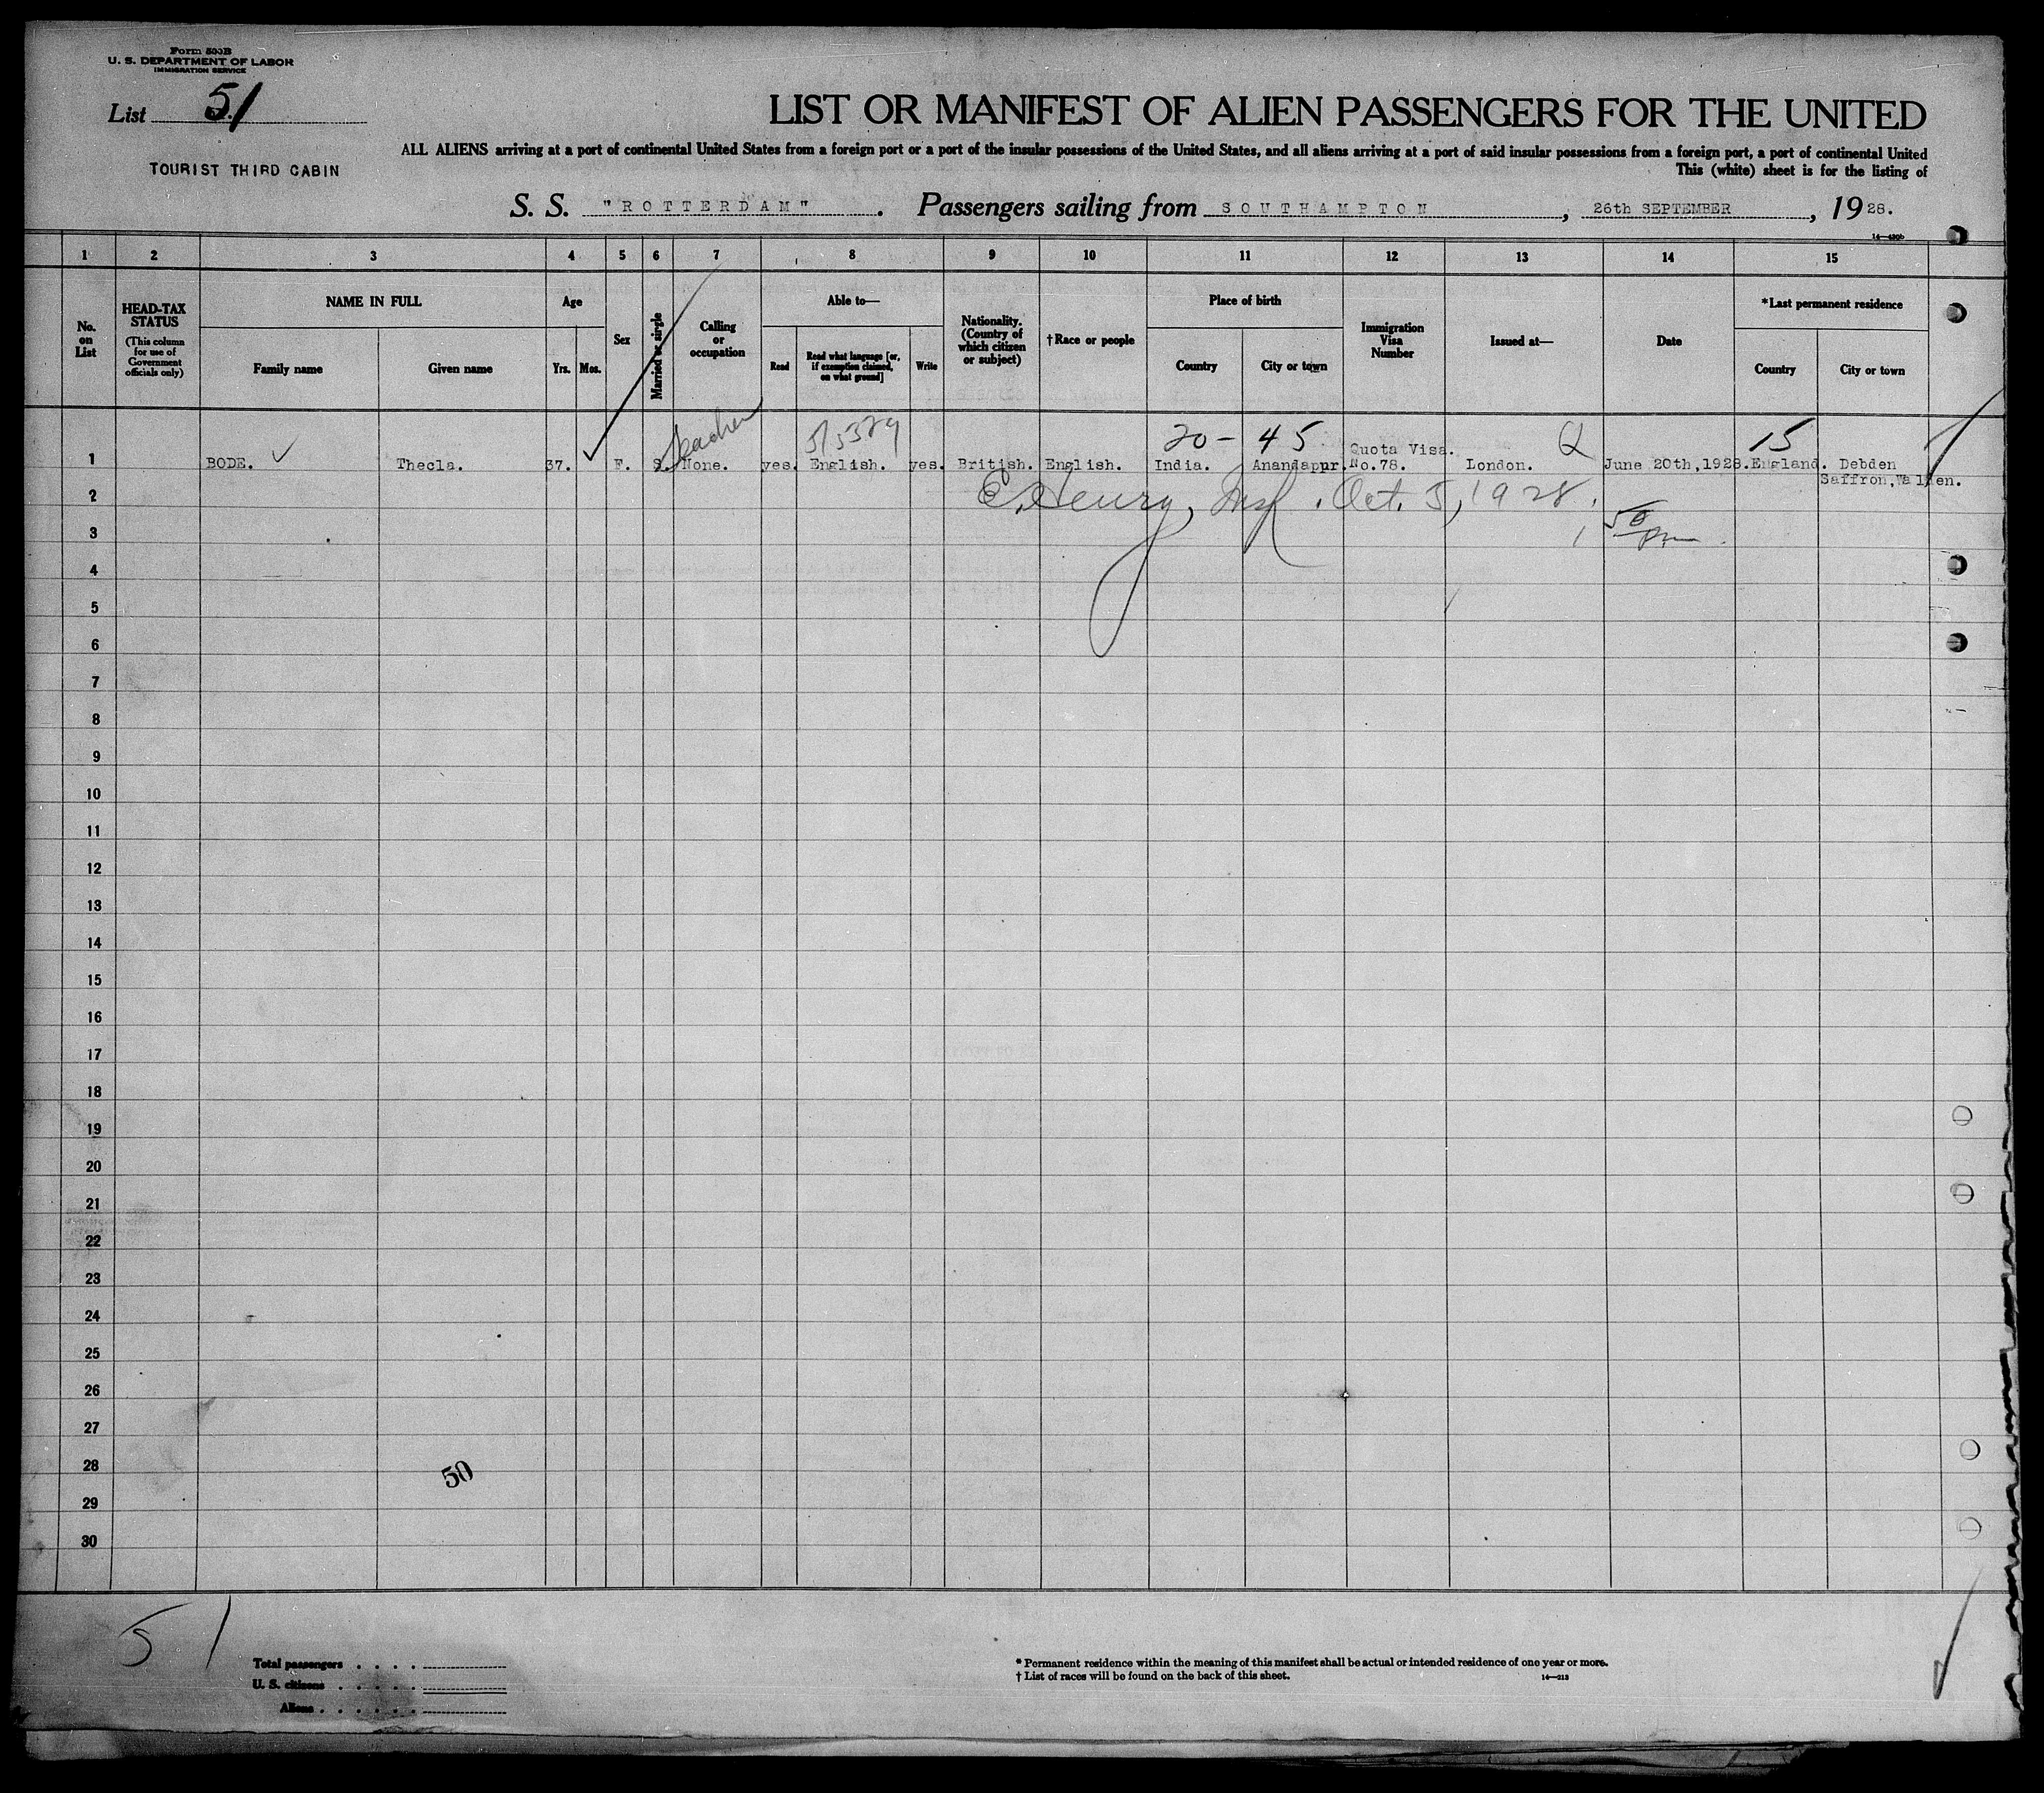 Form 500B
U. S. DEPARTMENT OF LABOR
IMMIGRATION SERVICE
List 51
LIST OR MANIFEST OF ALIEN PASSENGERS FOR THE UNITED
ALL ALIENS arriving at a port of continental United States from a foreign port or a port of the insular possessions of the United States, and all aliens arriving at a port of said insular possessions from a foreign port, a port of continental United
TOURIST THIRD CABIN
This (white) sheet is for the listing of
S. S. "ROTTERDAM". Passengers sailing from SOUTHAMPTON, 26th SEPTEMBER, 1928.
1 2 3 4 5 6 7 8 9 10 11 12 13 14 15
No. on List
HEAD-TAX STATUS
(This column for use of Government officials only)
NAME IN FULL
Family name
Given name
Age
Yrs. Mos.
Sex
Married or single
Calling or occupation
Able to—
Read
Read what language [or, if exemption claimed, on what ground]
Write
Nationality. (Country of which citizen or subject)
†Race or people
Place of birth
Country
City or town
Immigration Visa Number
Issued at—
Date
*Last permanent residence
Country
City or town
Teacher 20- 45 Q 15
1 BODE. Thecla. 37. F. S. None. yes. English. yes. British. English. India. Anandapur. Quota Visa. No.78. London. June 20th,1928. England. Debden
Saffron,Walden.
2
Henry, Insp. Oct. 5, 1928.
3
1 50 pm
4
5
6
7
8
9
10
11
12
13
14
15
16
17
18
19
20
21
22
23
24
25
26
27
28
50
29
30
51
Total passengers
U. S. citizens
Aliens
* Permanent residence within the meaning of this manifest shall be actual or intended residence of one year or more.
† List of races will be found on the back of this sheet.
14—213